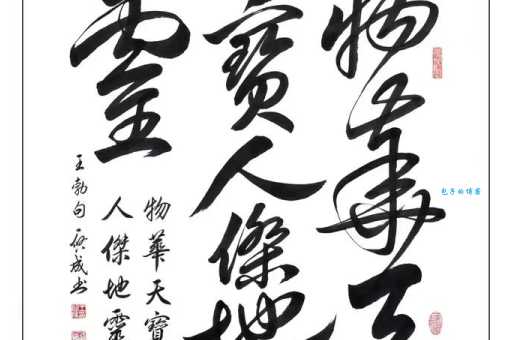 物華天
寶人傑地
靈
物華天寶
人傑地靈
王勃句 啟成书
包子的博客